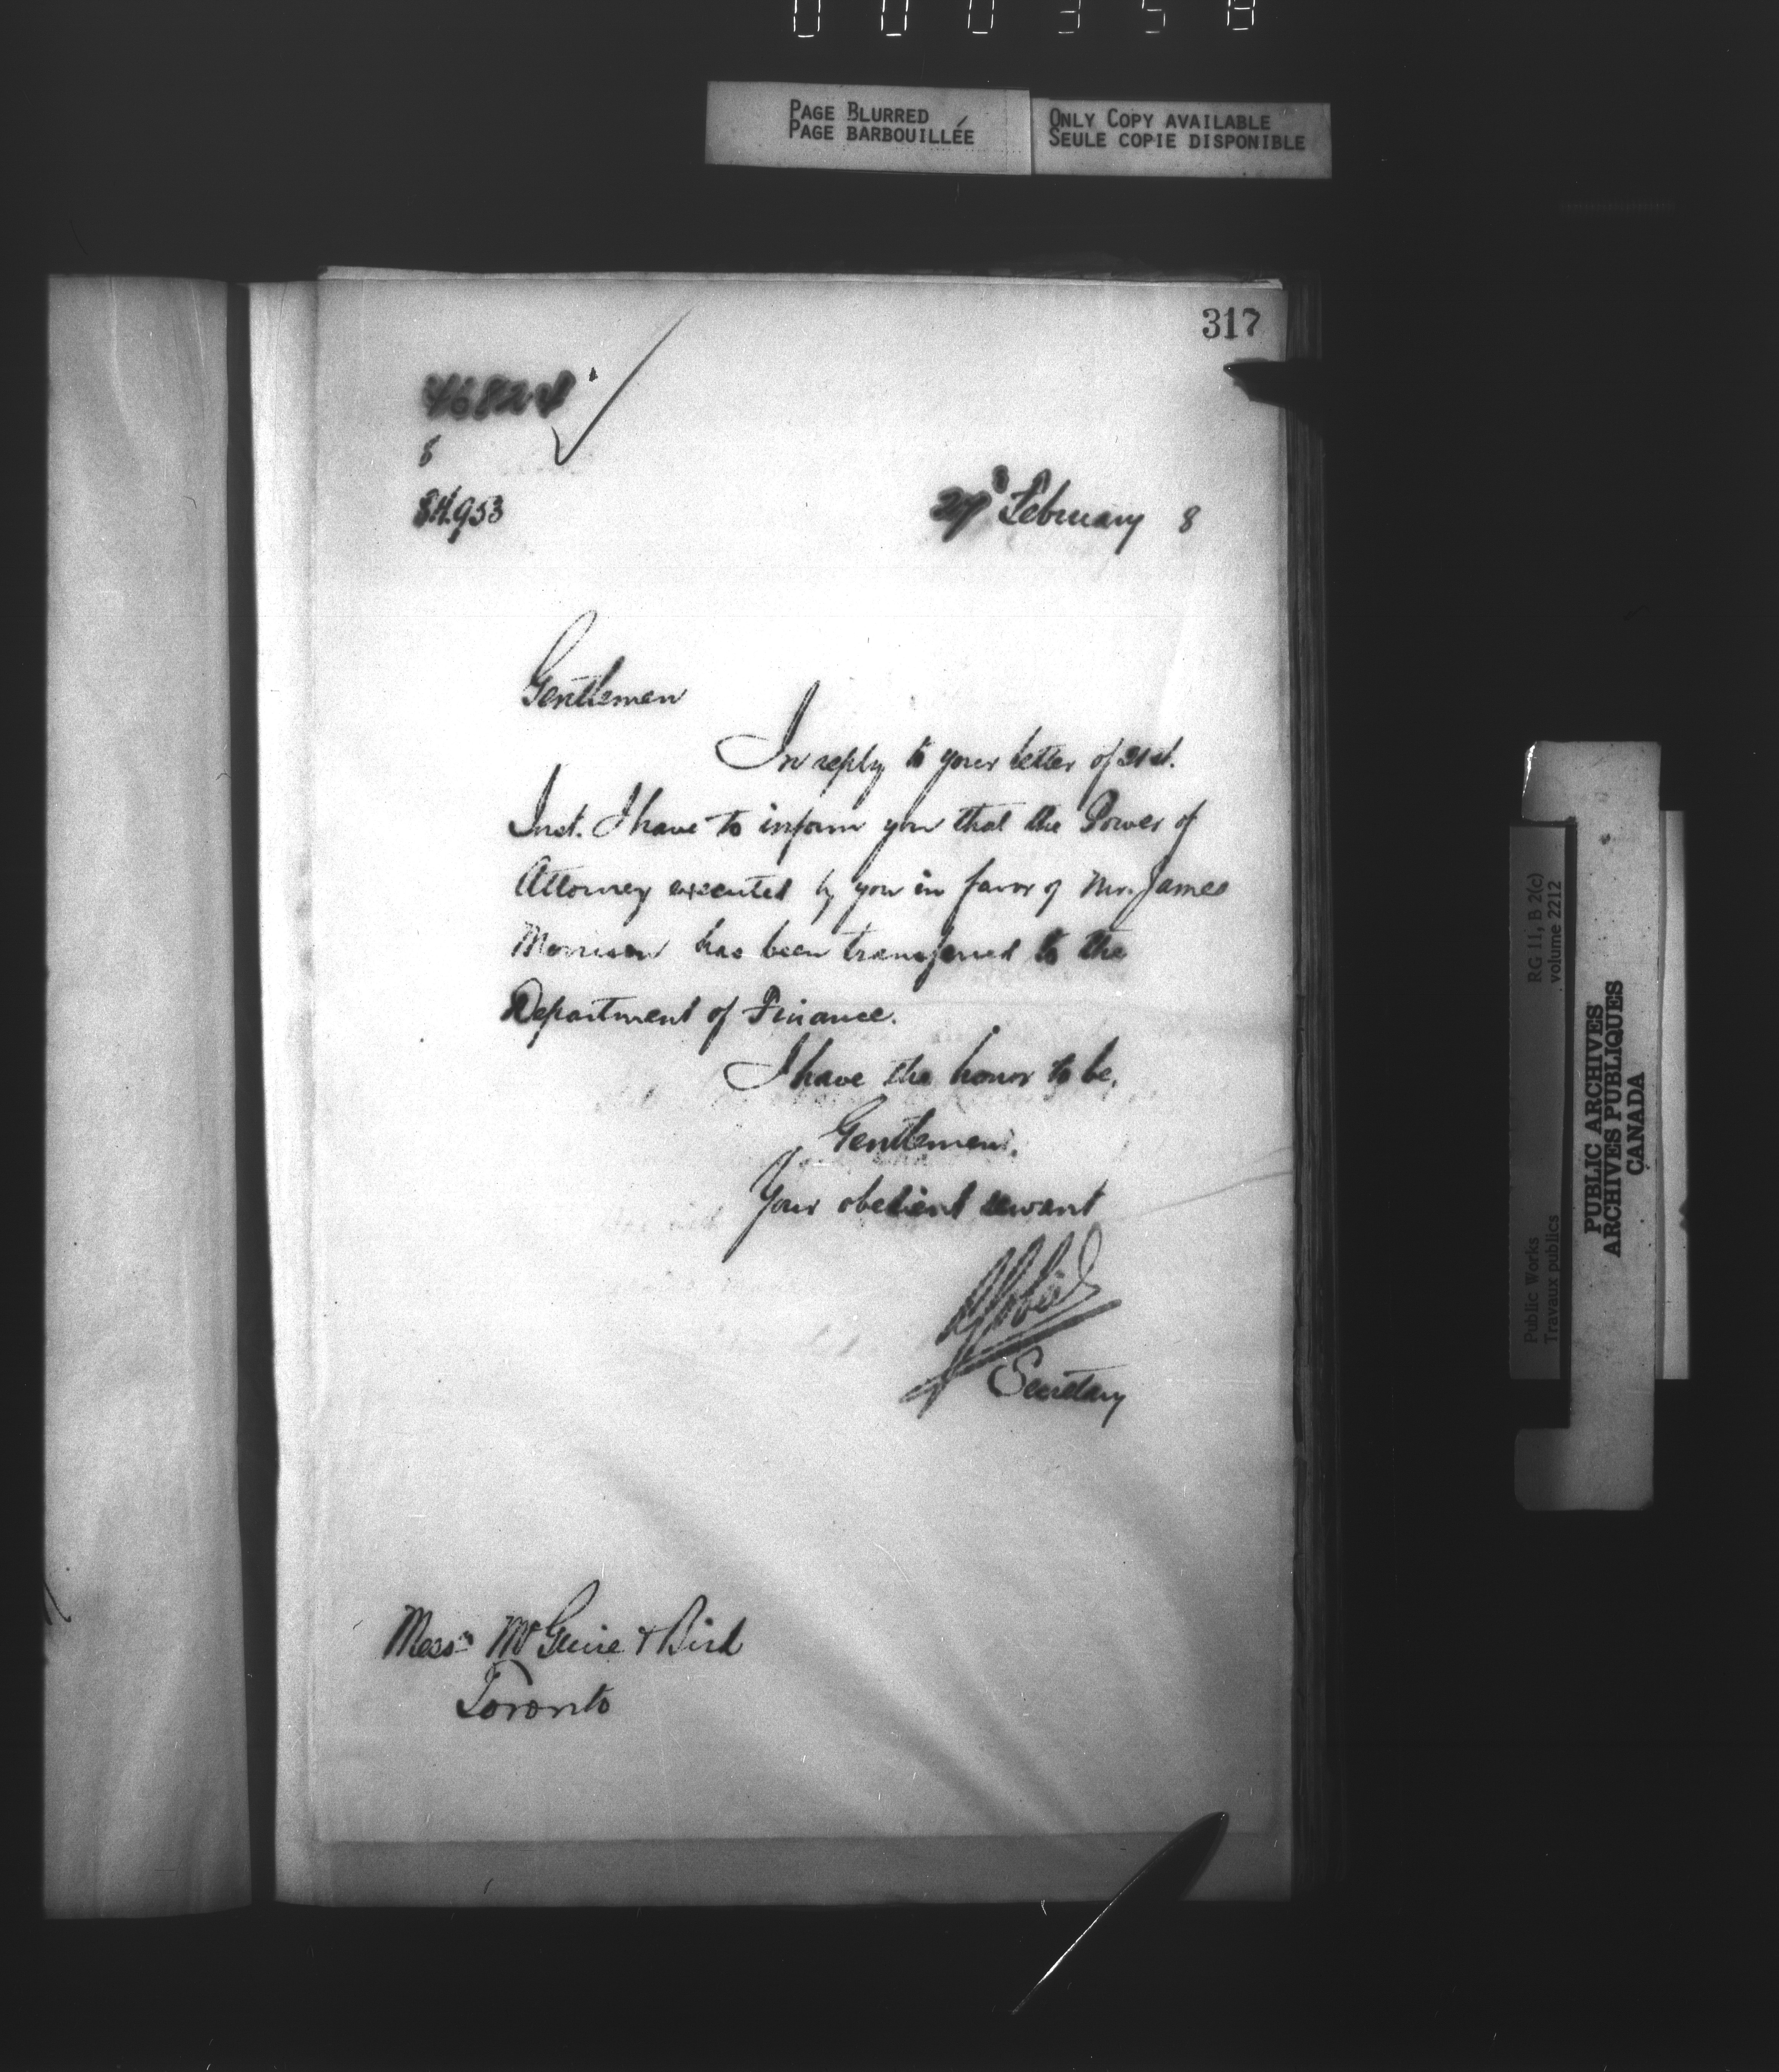 000358
PAGE BLURRED
PAGE BARBOUILLÉE
ONLY COPY AVAILABLE
SEULE COPIE DISPONIBLE
317
46824
8
84953
27 February 8
Gentlemen
In reply to your letter of 21st.
Inst. I have to inform you that the Power of
Attorney executed by you in favor of Mr. James
Morrison has been transferred to the
Department of Finance.
I have the honor to be,
Gentlemen,
Your obedient servant
Secretary
Messrs McGuire & Bird
Toronto
RG 11, B 2(c)
volume 2212
Public Works
Travaux publics
PUBLIC ARCHIVES
ARCHIVES PUBLIQUES
CANADA